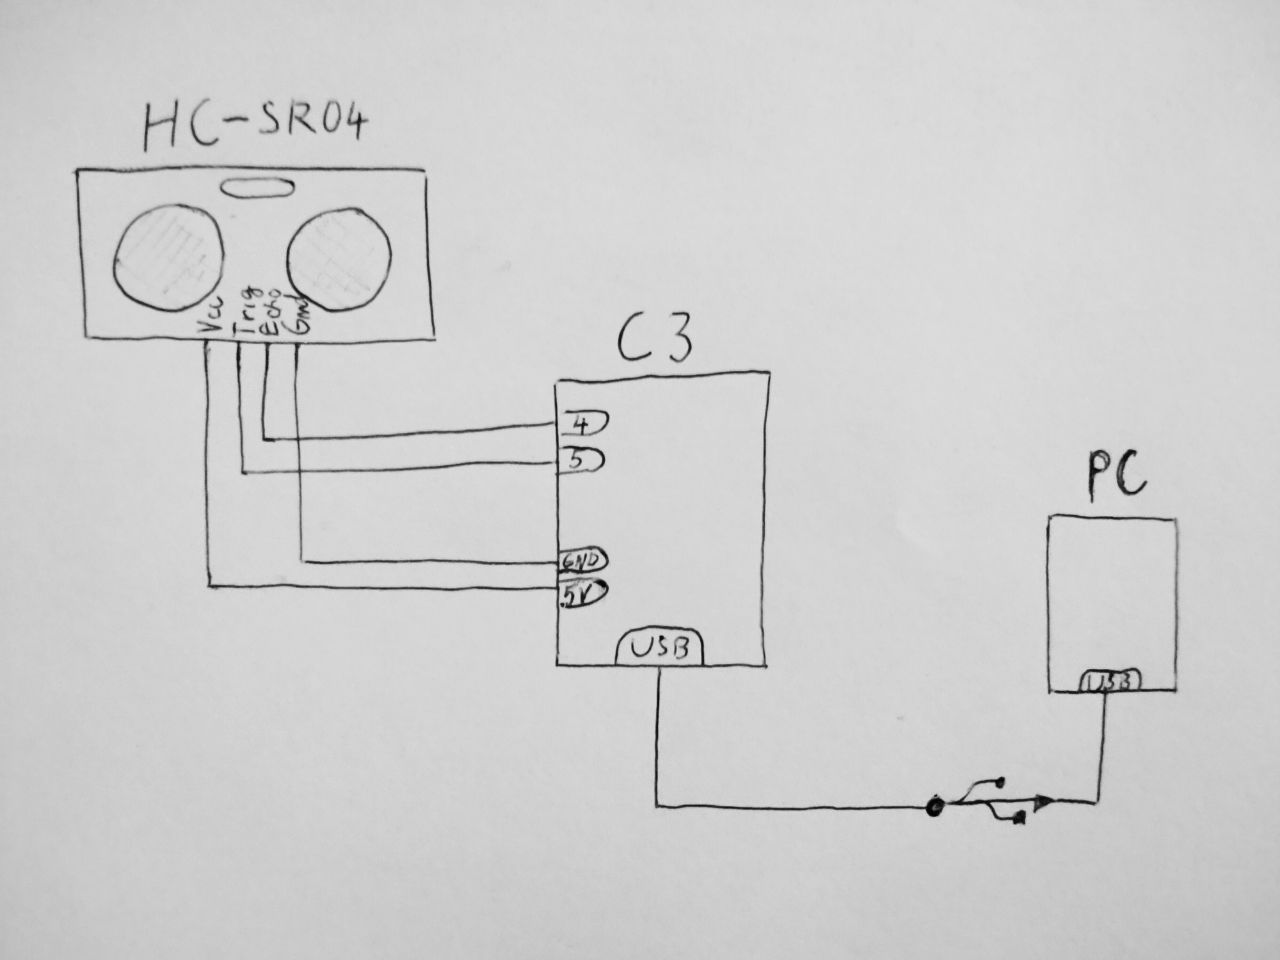 HC-SR04
Vcc
Trig
Echo
Gnd
C3
4
5
GND
5V
USB
PC
USB